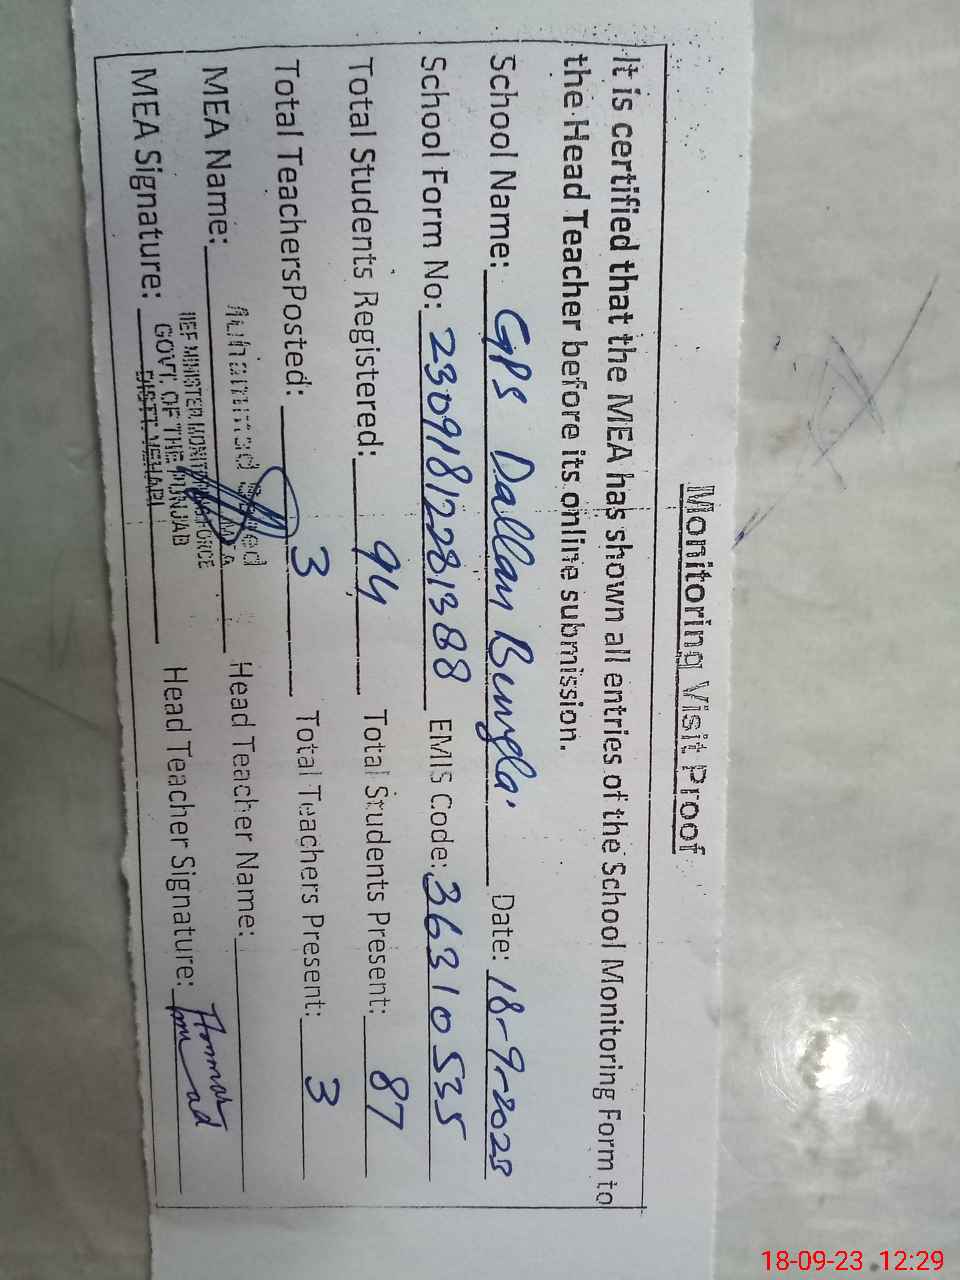 Monitoring Visit Proof
It is certified that the MEA has shown all entries of the School Monitoring Form to
the Head Teacher before its online submission.
School Name: GPS Dallan Bungla Date: 18-9-2023
School Form No: 23091812281388 EMIS Code: 36310535
Total Students Registered: 94 Total Students Present: 87
Total TeachersPosted: 3 Total Teachers Present: 3
MEA Name: Muhammad MEA Head Teacher Name:
IEF MINISTER, MONITORING FORCE
GOVT. OF THE PUNJAB
DISTT. VEHARI
MEA Signature: Head Teacher Signature:
18-09-23 12:29